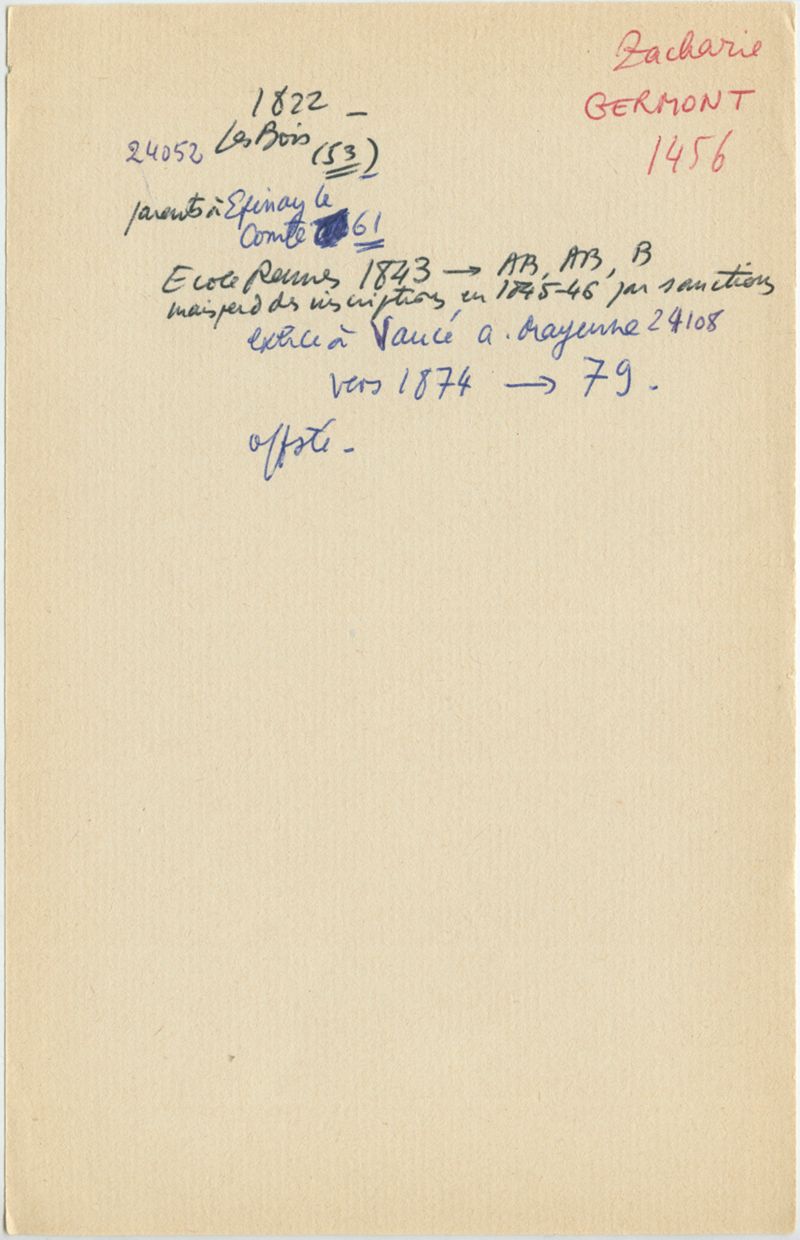 Zacharie
GERMONT
1456
1822 -
24052 Les Bois (53)
parents à Epinay le
Comte 61
Ecole Rennes 1843 → AB, AB, B
mais perd des inscriptions en 1845-46 par sanctions
exerce à Vaucé a. Mayenne 24108
vers 1874 → 79.
offsté -